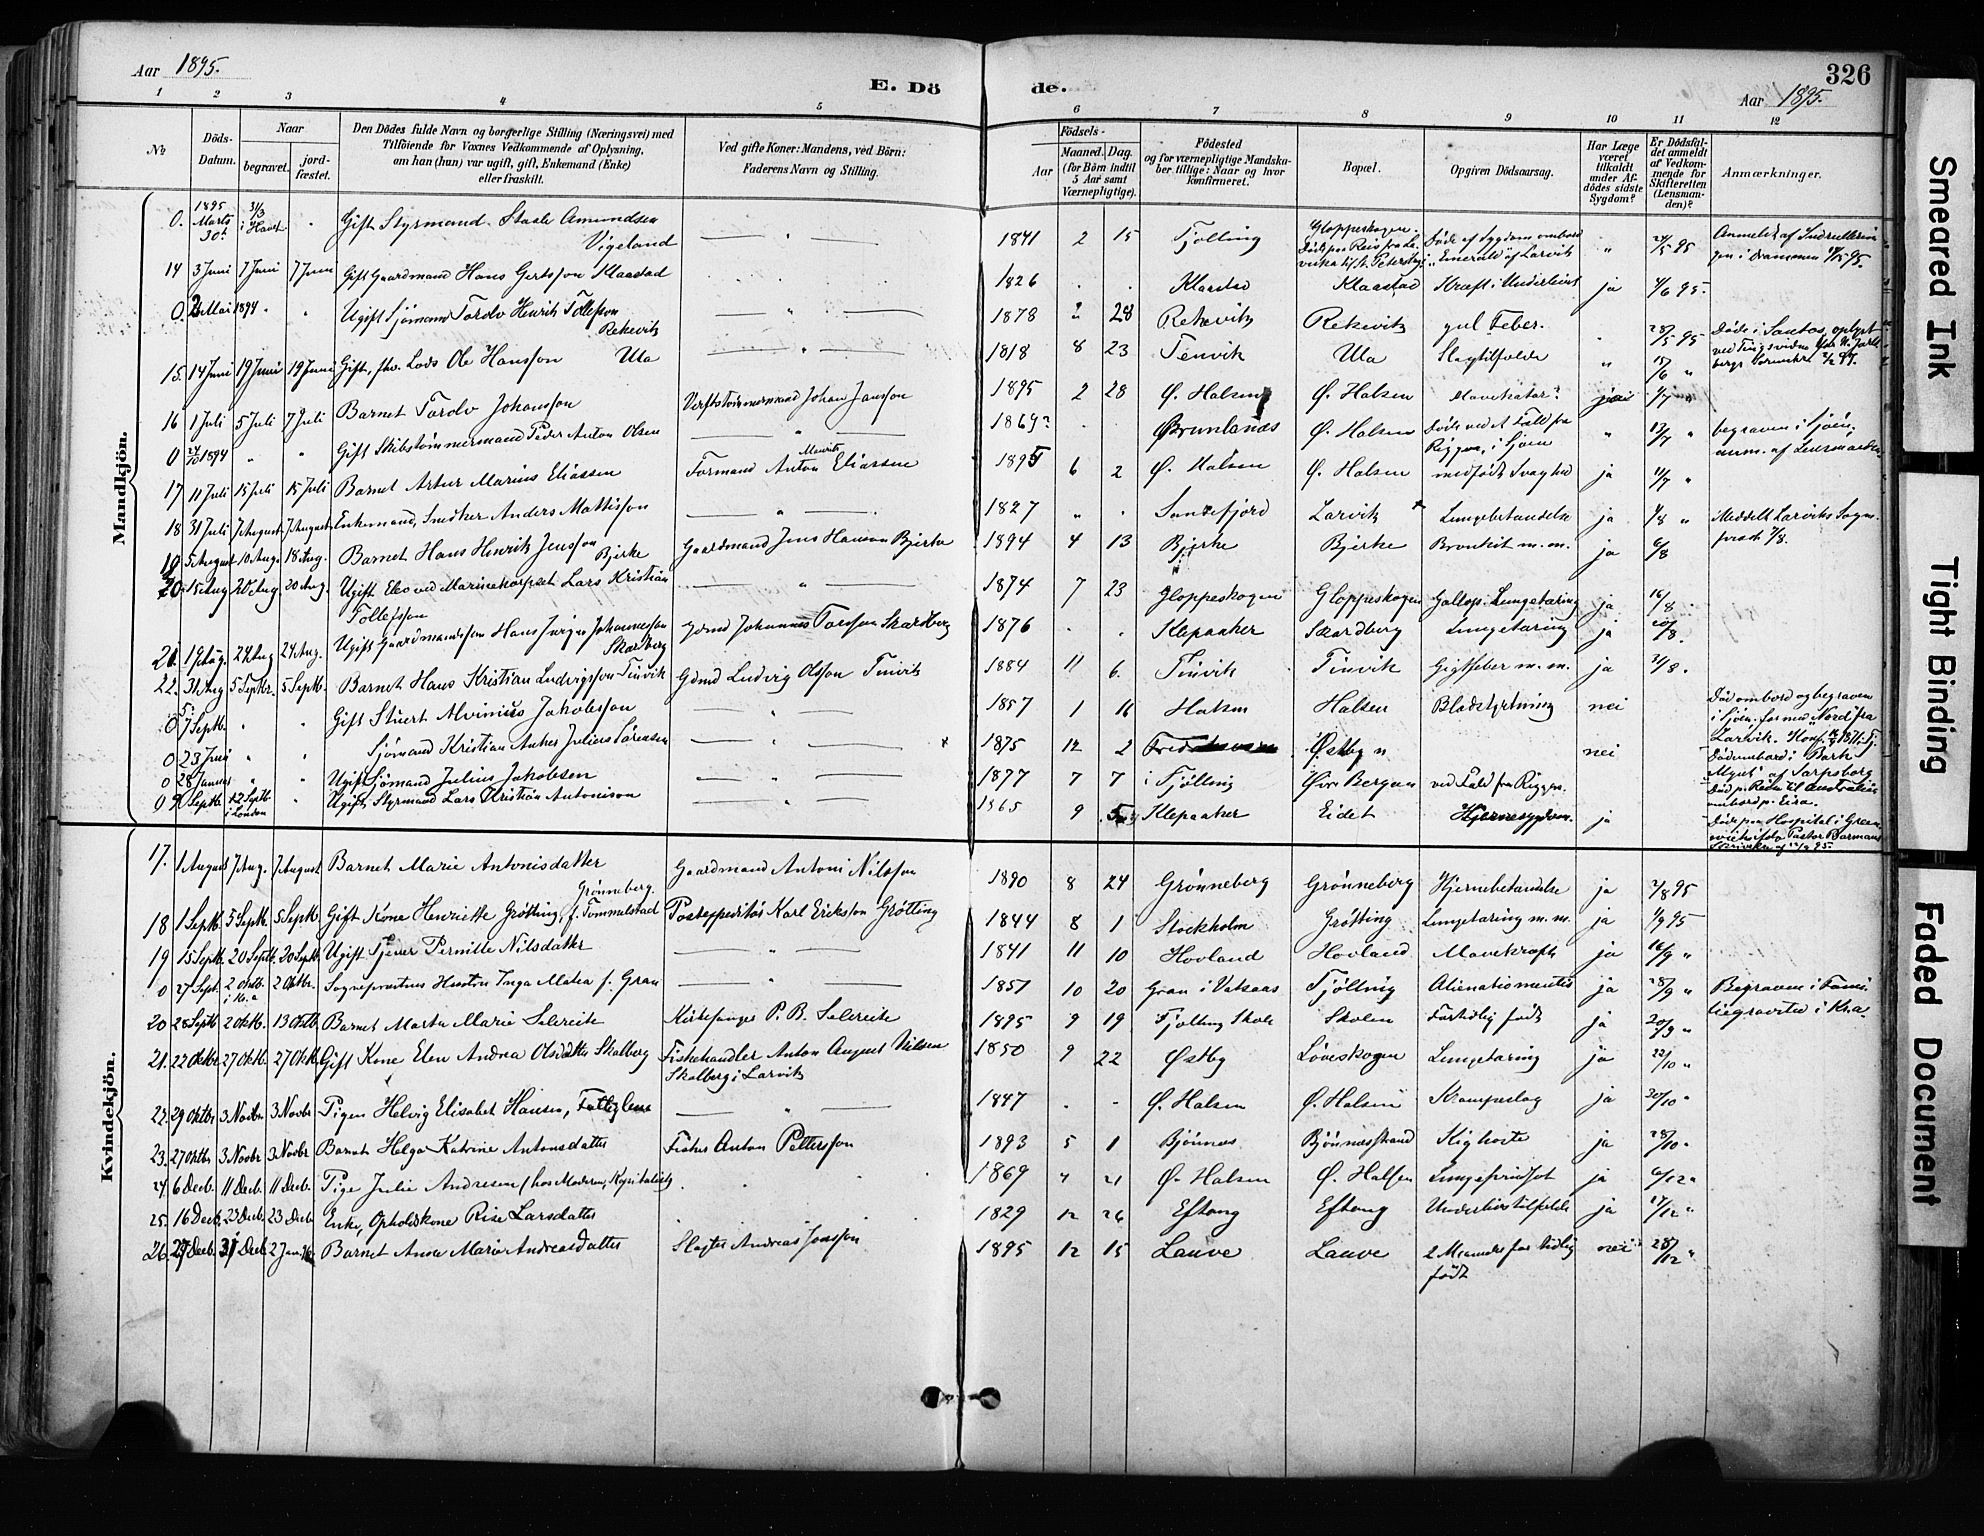 Aar 1895.
E. Döde.
326
Aar 1895.
1 2 3 4 5 6 7 8 9 10 11 12
No
Döds-Datum.
Naar
begravet.
jord-fæstet.
Den Dödes fulde Navn og borgerlige Stilling (Næringsvei) med
Tilföiende for Voxnes Vedkommende af Oplysning,
om han (hun) var ugift, gift, Enkemand (Enke)
eller fraskilt.
Ved gifte Koner: Mandens, ved Börn:
Faderens Navn og Stilling.
Födsels-
Aar
Maaned. Dag.
(for Börn indtil
5 Aar samt
Værnepligtige).
Födested
og for værnepligtige Mandska-
ber tillige: Naar og hvor
konfirmeret.
Bopæl.
Opgiven Dödsaarsag.
Har Læge
været
tilkaldt
under Af-
dödes sidste
Sygdom?
Er Dödsfal-
det anmeldt
af Vedkom-
mende for
Skifteretten
(Lensman-
den)?
Anmærkninger.
Mandkjön.
0. 1895 Marts 30te 31/3 i Havet " Gift Styrmand Staale Amundsen Vigeland — " — 1841 2 15 Tjølling Gloppeskogen. Døde af Sygdom ombord "Emerald" af Larvik " 24/5 95
14 3 Juni 7 Juni 7 Juni Gift Gaardmand Hans Gertsson Klaastad 1826 . . Klaastad Klaastad Kræft i Underlivet ja 4/6 95.
0. 2 Mai 1894 " " Ugift Sjømand Tordv Henrik Tollefson Rekevik — " — 1878 " 28 Rekevik Rekevik gul Feber. 28/5 95 Døde i Santos, oplyst
15. 14 Juni 19 Juni 19 Juni Gift, fhv. Lods Ole Hansson Ula — " — 1818 8 23 Tenvik Ula Slagtilfælde " 15/6 "
16 1 Juli 5 Juli 7 Juli Barnet Tordv Johansson Verftstømmermand Johan Jansson 1895 2 28 Ø. Halsen Ø. Halsen Mavekatar? 4/7 "
0 27/10 1894 " " Gift Skibstømmermand Peder Anton Olsen — " — 1869? . . Brunlanæs Ø. Halsen Døde ved et Fald fra Riggen, i Sjøen " 13/7 " begraven i Sjøen, anm. af Lensmanden
17 11 Juli 15 Juli 15 Juli Barnet Artur Marius Eliassen Formand Anton Mauritz Eliassen 1895 6 2 Ø. Halsen Ø. Halsen medfødt Svaghed ja 11/7 "
18 31 Juli 7 August 7 August Enkemand, Snedker Anders Mattisson — " — 1827 " " Sandefjord Larvik Lungebetændelse ja 1/8 " Meddelt Larviks Sogne
19 5 August 10 Aug. 18 Aug. Barnet Hans Henrik Jensson Bjerke Gaardmand Jens Hansson Bjerke 1894 4 13 Bjerke Bjerke Bronkit m.m. ja 6/8
20. 15 Aug 20 Aug 20 Aug. Ugift Elev ved Marinekorpset Lars Kristian Tollefsson — " — 1874 7 23 Gloppeskogen Gloppeskogen Gallop. Lungetæring ja 16/8
21. 19 Aug. 24 Aug 24 Aug. Ugift Gaardmandssøn Hans Jørgen Johannesson Skardberg Gdmd Johannes Torsson Skardberg 1876 . . Klepaaker Skardberg Lungetæring ja 20/8.
22. 31 Aug 5 Septbr. 5 Septb. Barnet Hans Kristian Ludvigsson Tinvik Gdmd Ludvig Olsson Tinvik 1884 11 6. Tinvik Tinvik Gigtfeber m.m. ja 2/8.
0 7 Septb. " " Gift Stuert Alvinius Jakobsson — " — 1857 1 16 Halsen Halsen Blodstyrtning nei Død ombord og begraven i Sjøen
0 23 Juni " " Sjømand Kristian Anker Julius Sørensen — " — 1875 12 2 Østbyn nei
0 28 Januar " " Ugift Sjømand Julius Jakobsen — " — 1877 7 7 i Tjølling Øvre Bergan ved Fald fra Riggen.
0 9 Septb. 12 Septb i London " Ugift Styrmand Lars Kristian Antonison — " — 1865 9 Klepaaker Eidet Hjernesygdom. ja
Kvindekjön.
17. 1 August 7 Aug. 7 August Barnet Marie Antonisdatter Grønneberg. Gaardmand Antoni Nilsson 1890 8 24 Grønneberg Grønneberg Hjernebetændelse ja 2/8 95
18 1 Septb. 5 Septb. 5 Septb. Gift Kone Henriette Grøtting, f. Tommelstad Postexpeditør Karl Eriksson Grøtting 1844 8 1 Stockholm Grøtting Lungetæring m.m. ja 1/9 95
19 15 Septb. 20 Septb. 20 Septb. Ugift Tjener Pernille Nilsdatter — " — 1841 11 10 Hovland Hovland Mavekræft ja 16/9 "
0 27 Sept. 2 Oktb. i Kr.a 2 Oktbr. Sogneprestens Hustru Inga Matea f. Gran " 1851 10 20 Gran i Valsaas Tjølling Alienatio mentis ja 28/9 " Begraven i Familiegravsted i Kr.a.
20 28 Septb 2 Oktb. 13 Oktb. Barnet Marta Marie Selereite Kirkesanger P. B. Selereite 1895 9 19 Tjølling Skole Skolen Fortidlig født ja 20/9 "
21. 22 Oktbr 27 Oktb. 27 Oktb. Gift Kone Elen Andrea Olsdatter Skalberg Fiskehandler Anton August Nilsen Skalberg i Larvik 1850 9 22 Østby Løveskogen Lungetæring ja 22/10 "
22. 29 Oktbr 3 Novbr 3 Novbr Pigen Helvig Elisabet Hansen, — " — 1847 - - Ø. Halsen Ø. Halsen Krampeslag ja 30/10 "
23. 27 Oktbr 3 Novbr 3 Novbr Barnet Helga Katrine Antonsdatter Fisker Anton Pettersson 1893 5 1 Bjønnæs Bjønnesstrand Kighoste ja 28/10 "
24. 6 Decb. 11 Decb. 11 Decb. Pige Julie Andresen (hos Moderen, Kapitalist) " 1869 4 21 Ø. Halsen Ø. Halsen ja 6/12 "
25. 16 Decb. 23 Decb. 23 Decb Enke, Opholdskone Rise Larsdatter 1829 12 26 Eftang Eftang Underlivstilfælde ja 17/12 "
26. 27 Decb. 31 Decb. 2 Jan. Barnet Anna Marie Andreasdatter Slagter Andreas Jonsson 1895 12 15 Lauve Lauve 2 Maaneder for tidlig født nei 28/12 "
Smeared Ink
Tight Binding
Faded Document